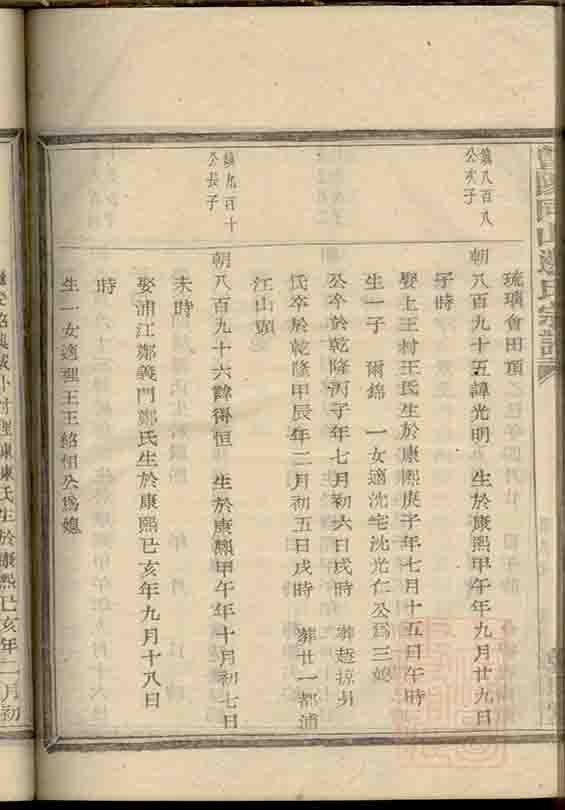 琉璃會田頂
鎮八百八
公次子
朝八百九十五諱光明 生於康熙甲午年九月廿九日
子時
娶上王村王氏生於康熙庚子年七月十五日午時
生一子 爾錦 一女適沈宅沈光仁公爲三媳
公卒於乾隆丙子年七月初六日戌時 葬
氏卒於乾隆甲辰年二月初五日戌時 葬廿一都浦
江山頭
鎮九百十
公長子
朝八百九十六諱得恒 生於康熙甲午年十月初七日
未時
娶浦江鄭義門鄭氏生於康熙己亥年九月十八日
時
生一女適理王王紹恒公爲媳
氏生於康熙己亥年二月初
山邊氏宗譜